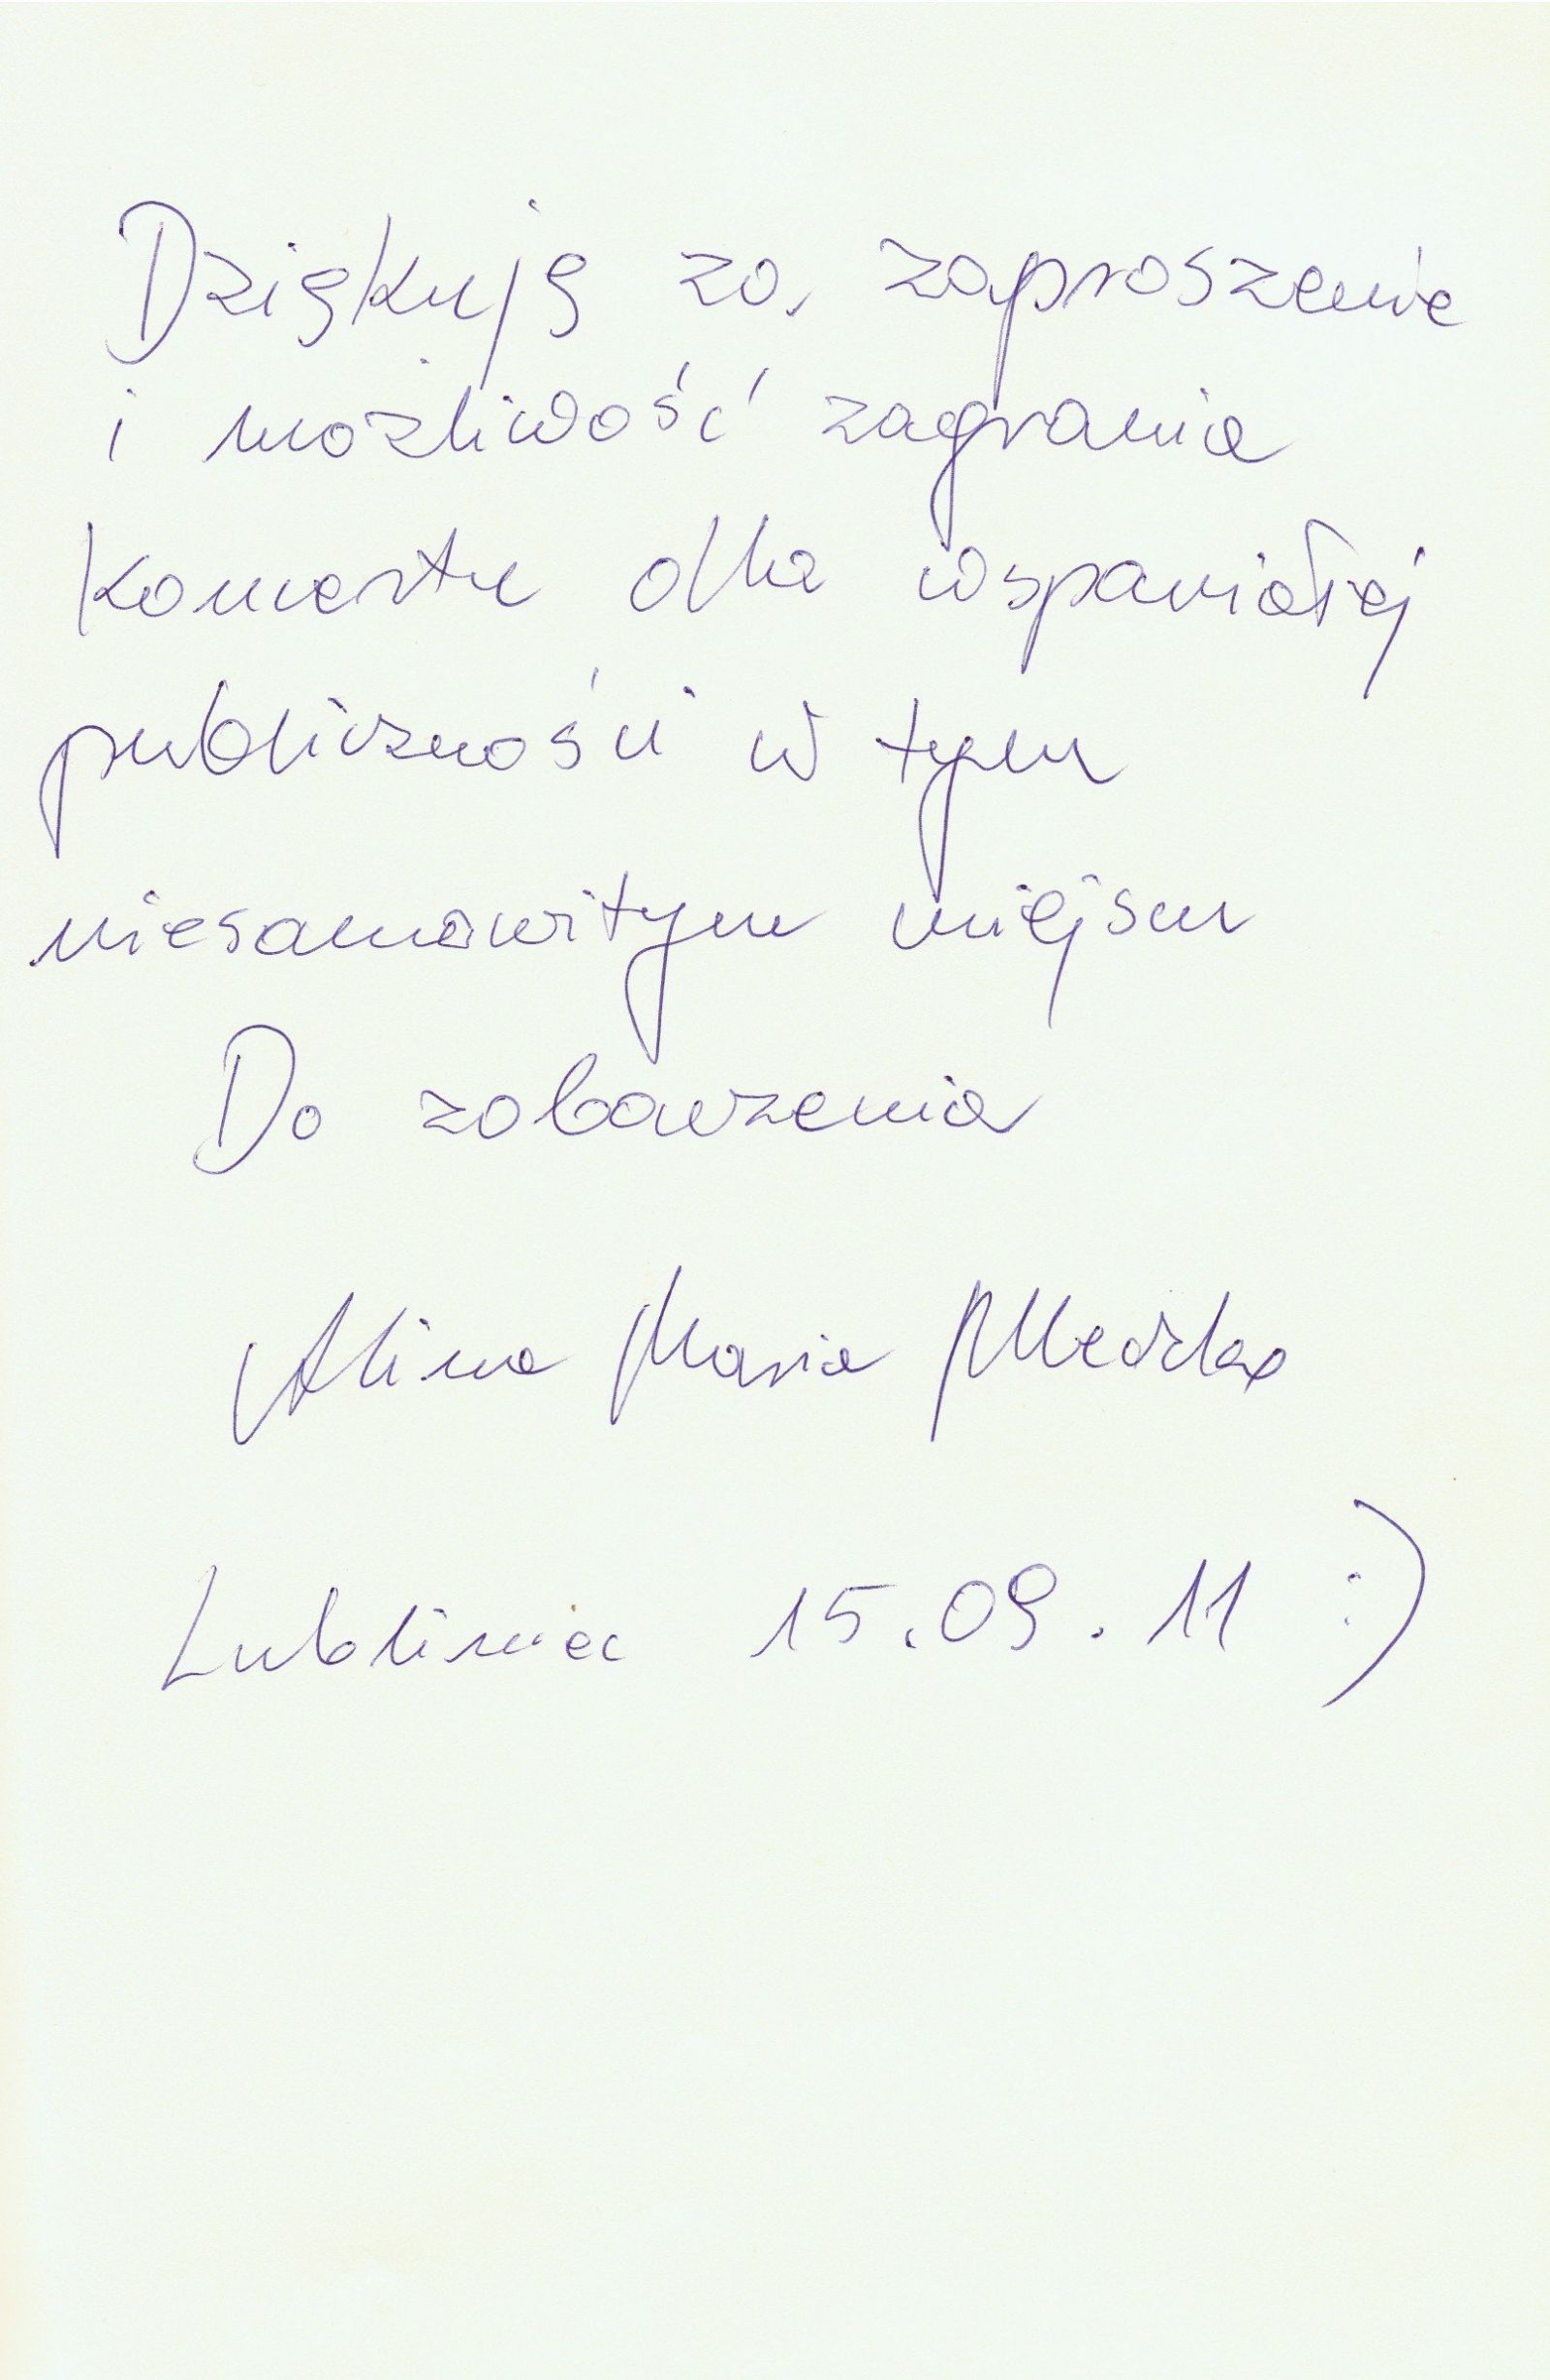 Dziękuję za zaproszenie
i możliwość zagrania
koncertu dla wspaniałej
publiczności w tym
niesamowitym miejscu
Do zobaczenia
Alina Maria Mleczko
Lubliniec 15.09.11 :)